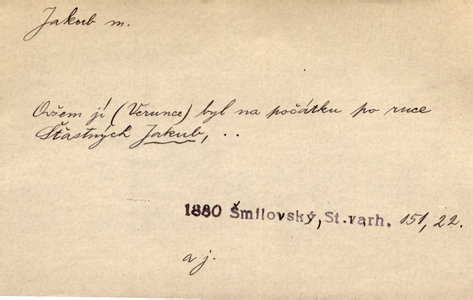 Jakub m.
Ovšem jí (Verunce) byl na počátku po ruce
Šťastných Jakub, ..
1880 Šmilovský, St. varh. 151, 22.
a j.